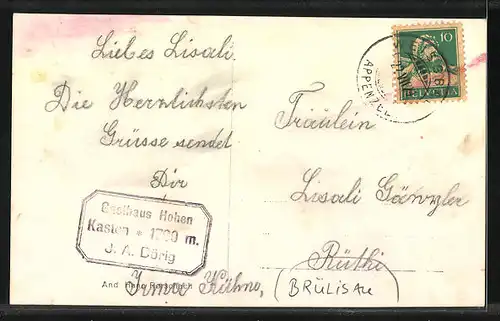 Liebes Lisali.
Die Herzlichsten
Grüsse sendet
Dir
Gasthaus Hohen
Kasten * 1790 m.
J. A. Dörig
And. Hane Rorschach
Irma Kühne,
10
HELVETIA
APPENZELL
Fräulein
Lisali Gänzler
Rüthi
(BRÜLISAU